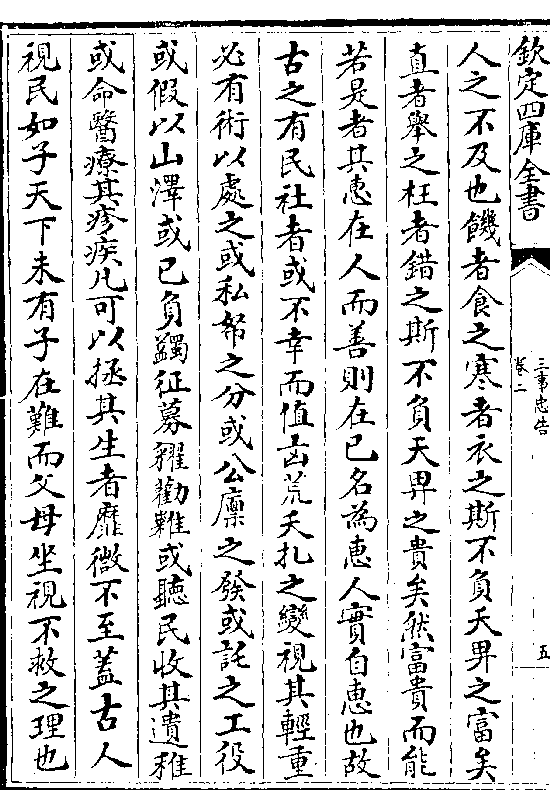 欽定四庫全書
三事忠告
卷二
五
人之不及也饑者食之寒者衣之斯不負天畀之富矣
直者舉之枉者錯之斯不負天畀之貴矣然富貴而能
若是者其惠在人而善則在已名為惠人實自惠也故
古之有民社者或不幸而值凶荒夭扎之變視其輕重
必有術以處之或私帑之分或公廩之發或託之工役
或假以山澤或已負蠲征募糴勸糶或聽民收其遺稚
或命醫療其疹疾凡可以拯其生者靡微不至蓋古人
視民如子天下未有子在難而父母坐視不救之理也